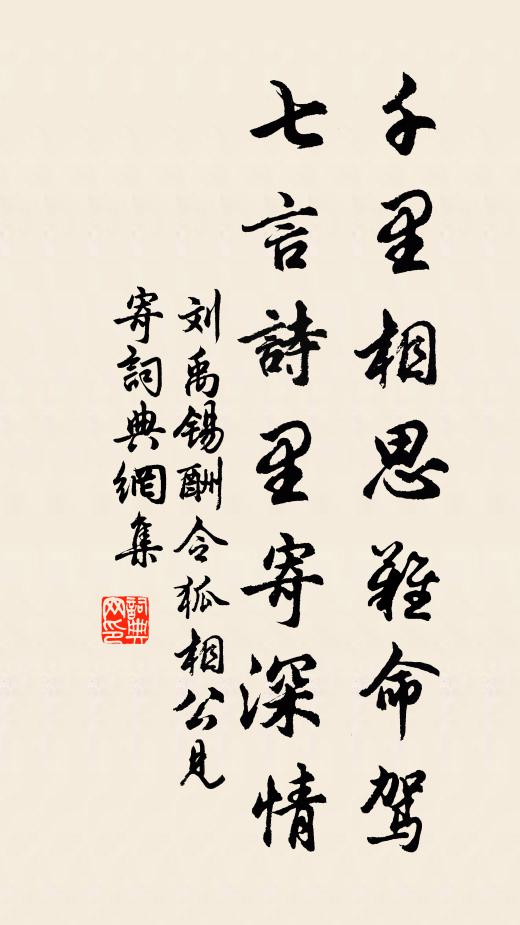 千里相思難命駕
七言詩里寄深情
刘禹锡酬令狐相公見
寄詞典網集
詞典网印